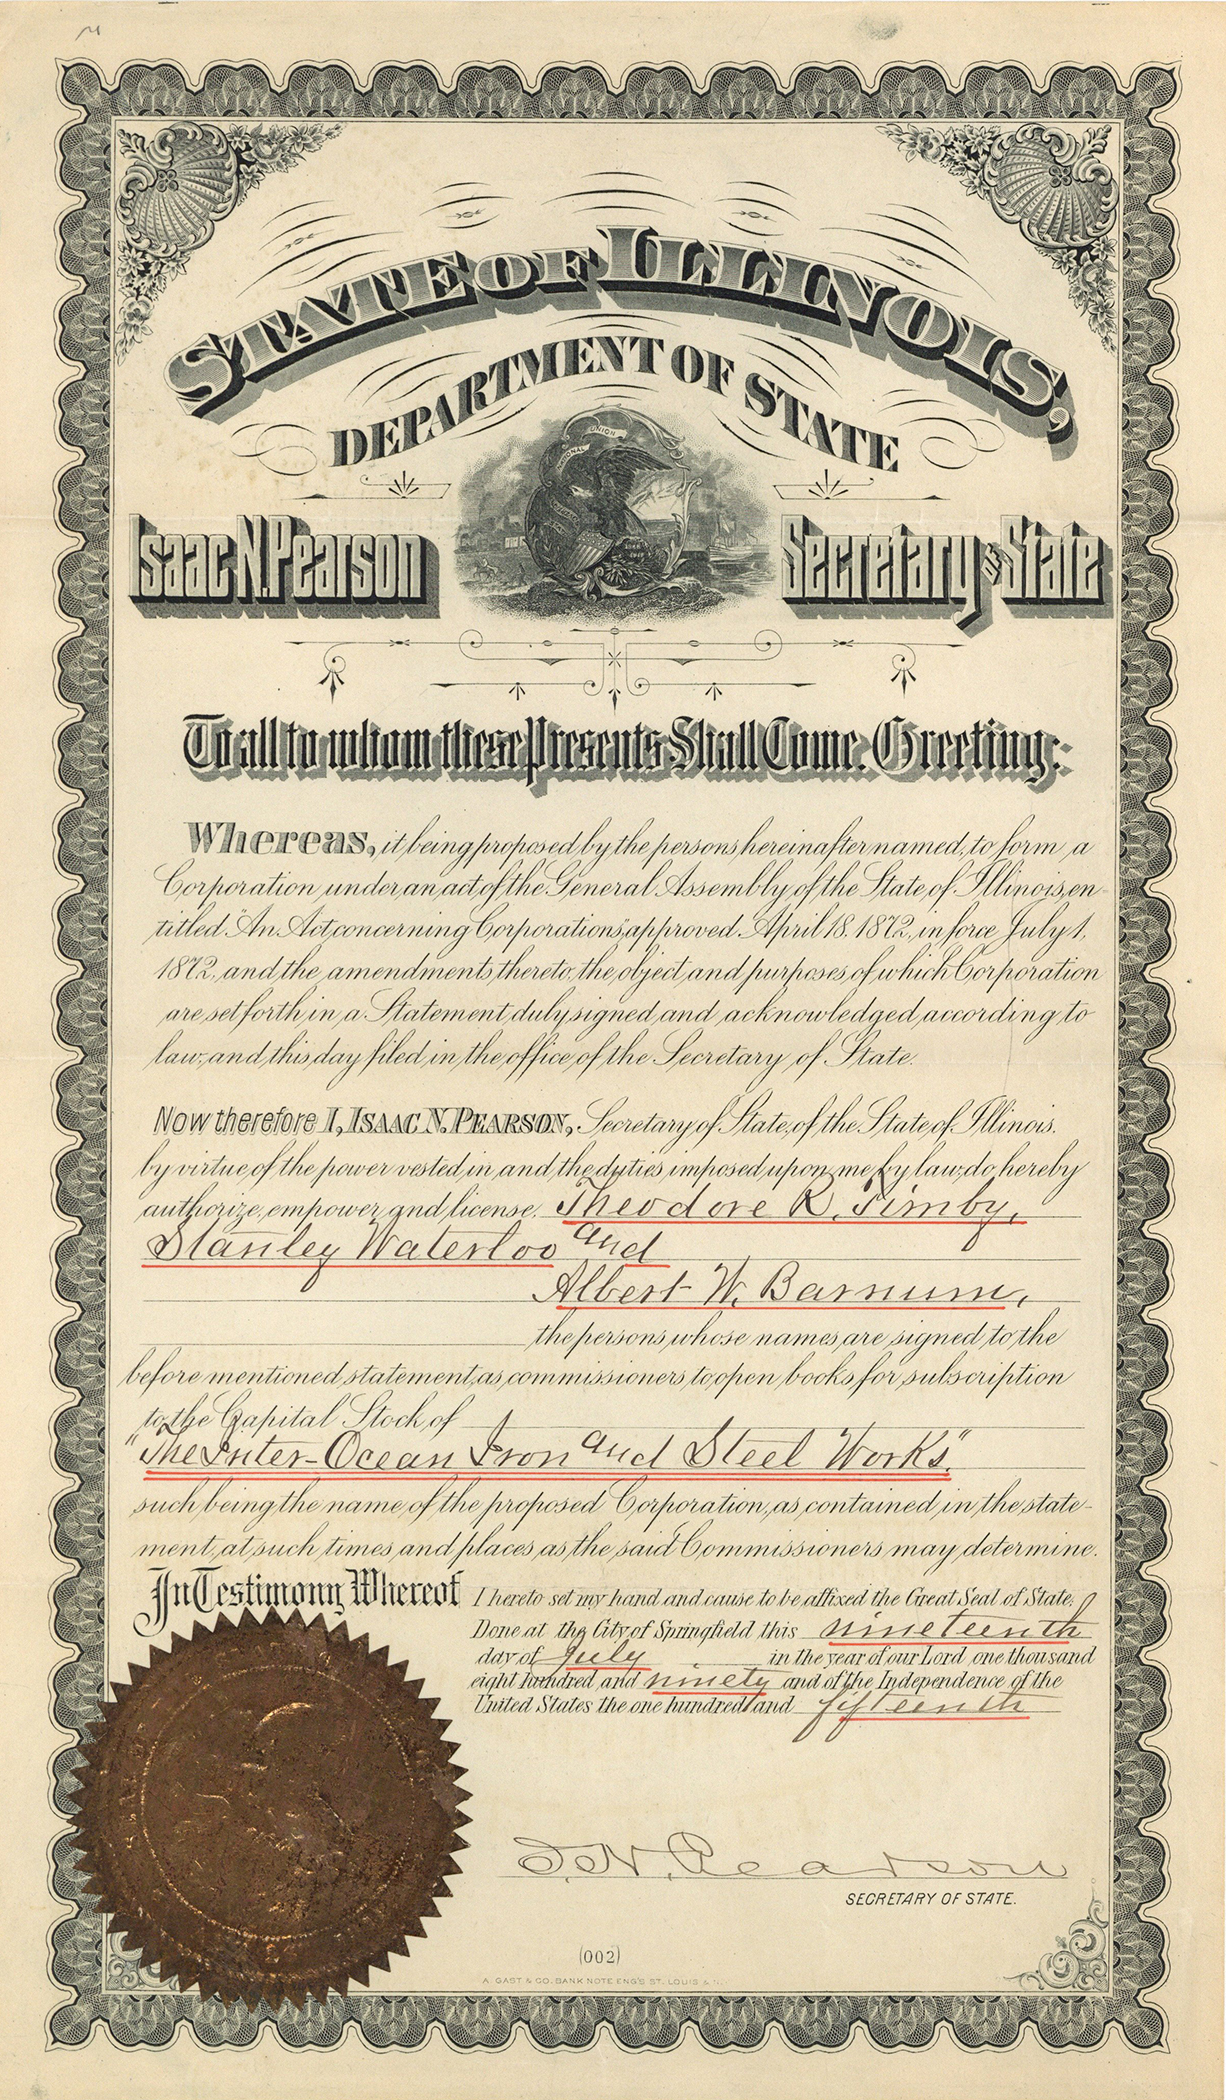 STATE OF ILLINOIS,
DEPARTMENT OF STATE
NATIONAL UNION
Isaac N. Pearson
Secretary of State
To all to whom these Presents Shall Come. Greeting:
Whereas, it being proposed by the persons hereinafter named, to form a
Corporation under an act of the General Assembly of the State of Illinois, en-
titled "An Act concerning Corporations," approved April 18. 1872, in force July 1,
1872, and the amendments thereto, the object and purposes of which Corporation
are set forth in a Statement, duly signed and acknowledged according to
law, and this day filed in the office of the Secretary of State.
Now therefore I, ISAAC N. PEARSON, Secretary of State, of the State of Illinois.
by virtue of the power vested in and the duties imposed upon me by law, do hereby
authorize, empower and license, Theodore R. Timby,
Stanley Waterloo and
Albert W. Barnum,
the persons whose names are signed to the
before mentioned statement, as commissioners to open books for subscription
to the Capital Stock of
"The Inter-Ocean Iron and Steel Works"
such being the name of the proposed Corporation, as contained in the state-
ment, at such times and places as the said Commissioners may determine.
In Testimony Whereof I hereto set my hand and cause to be affixed the Great Seal of State.
Done at the City of Springfield this nineteenth
day of July in the year of our Lord, one thousand
eight hundred and ninety and of the Independence of the
United States the one hundred and fifteenth
I. N. Pearson
SECRETARY OF STATE.
(002)
A GAST & CO. BANK NOTE ENG'S ST. LOUIS &